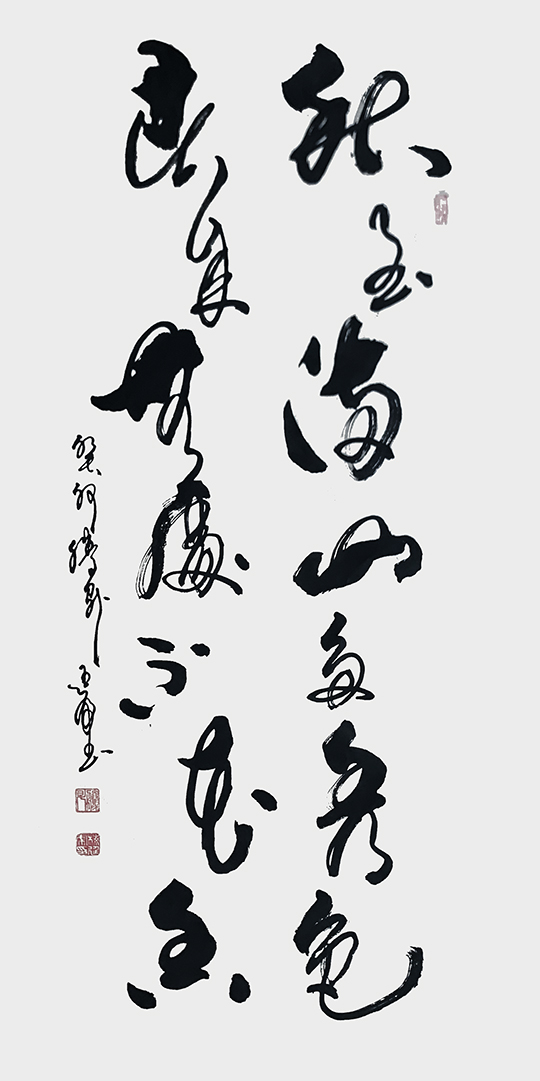 秋至满山多秀色
春来无处不花香
癸卯